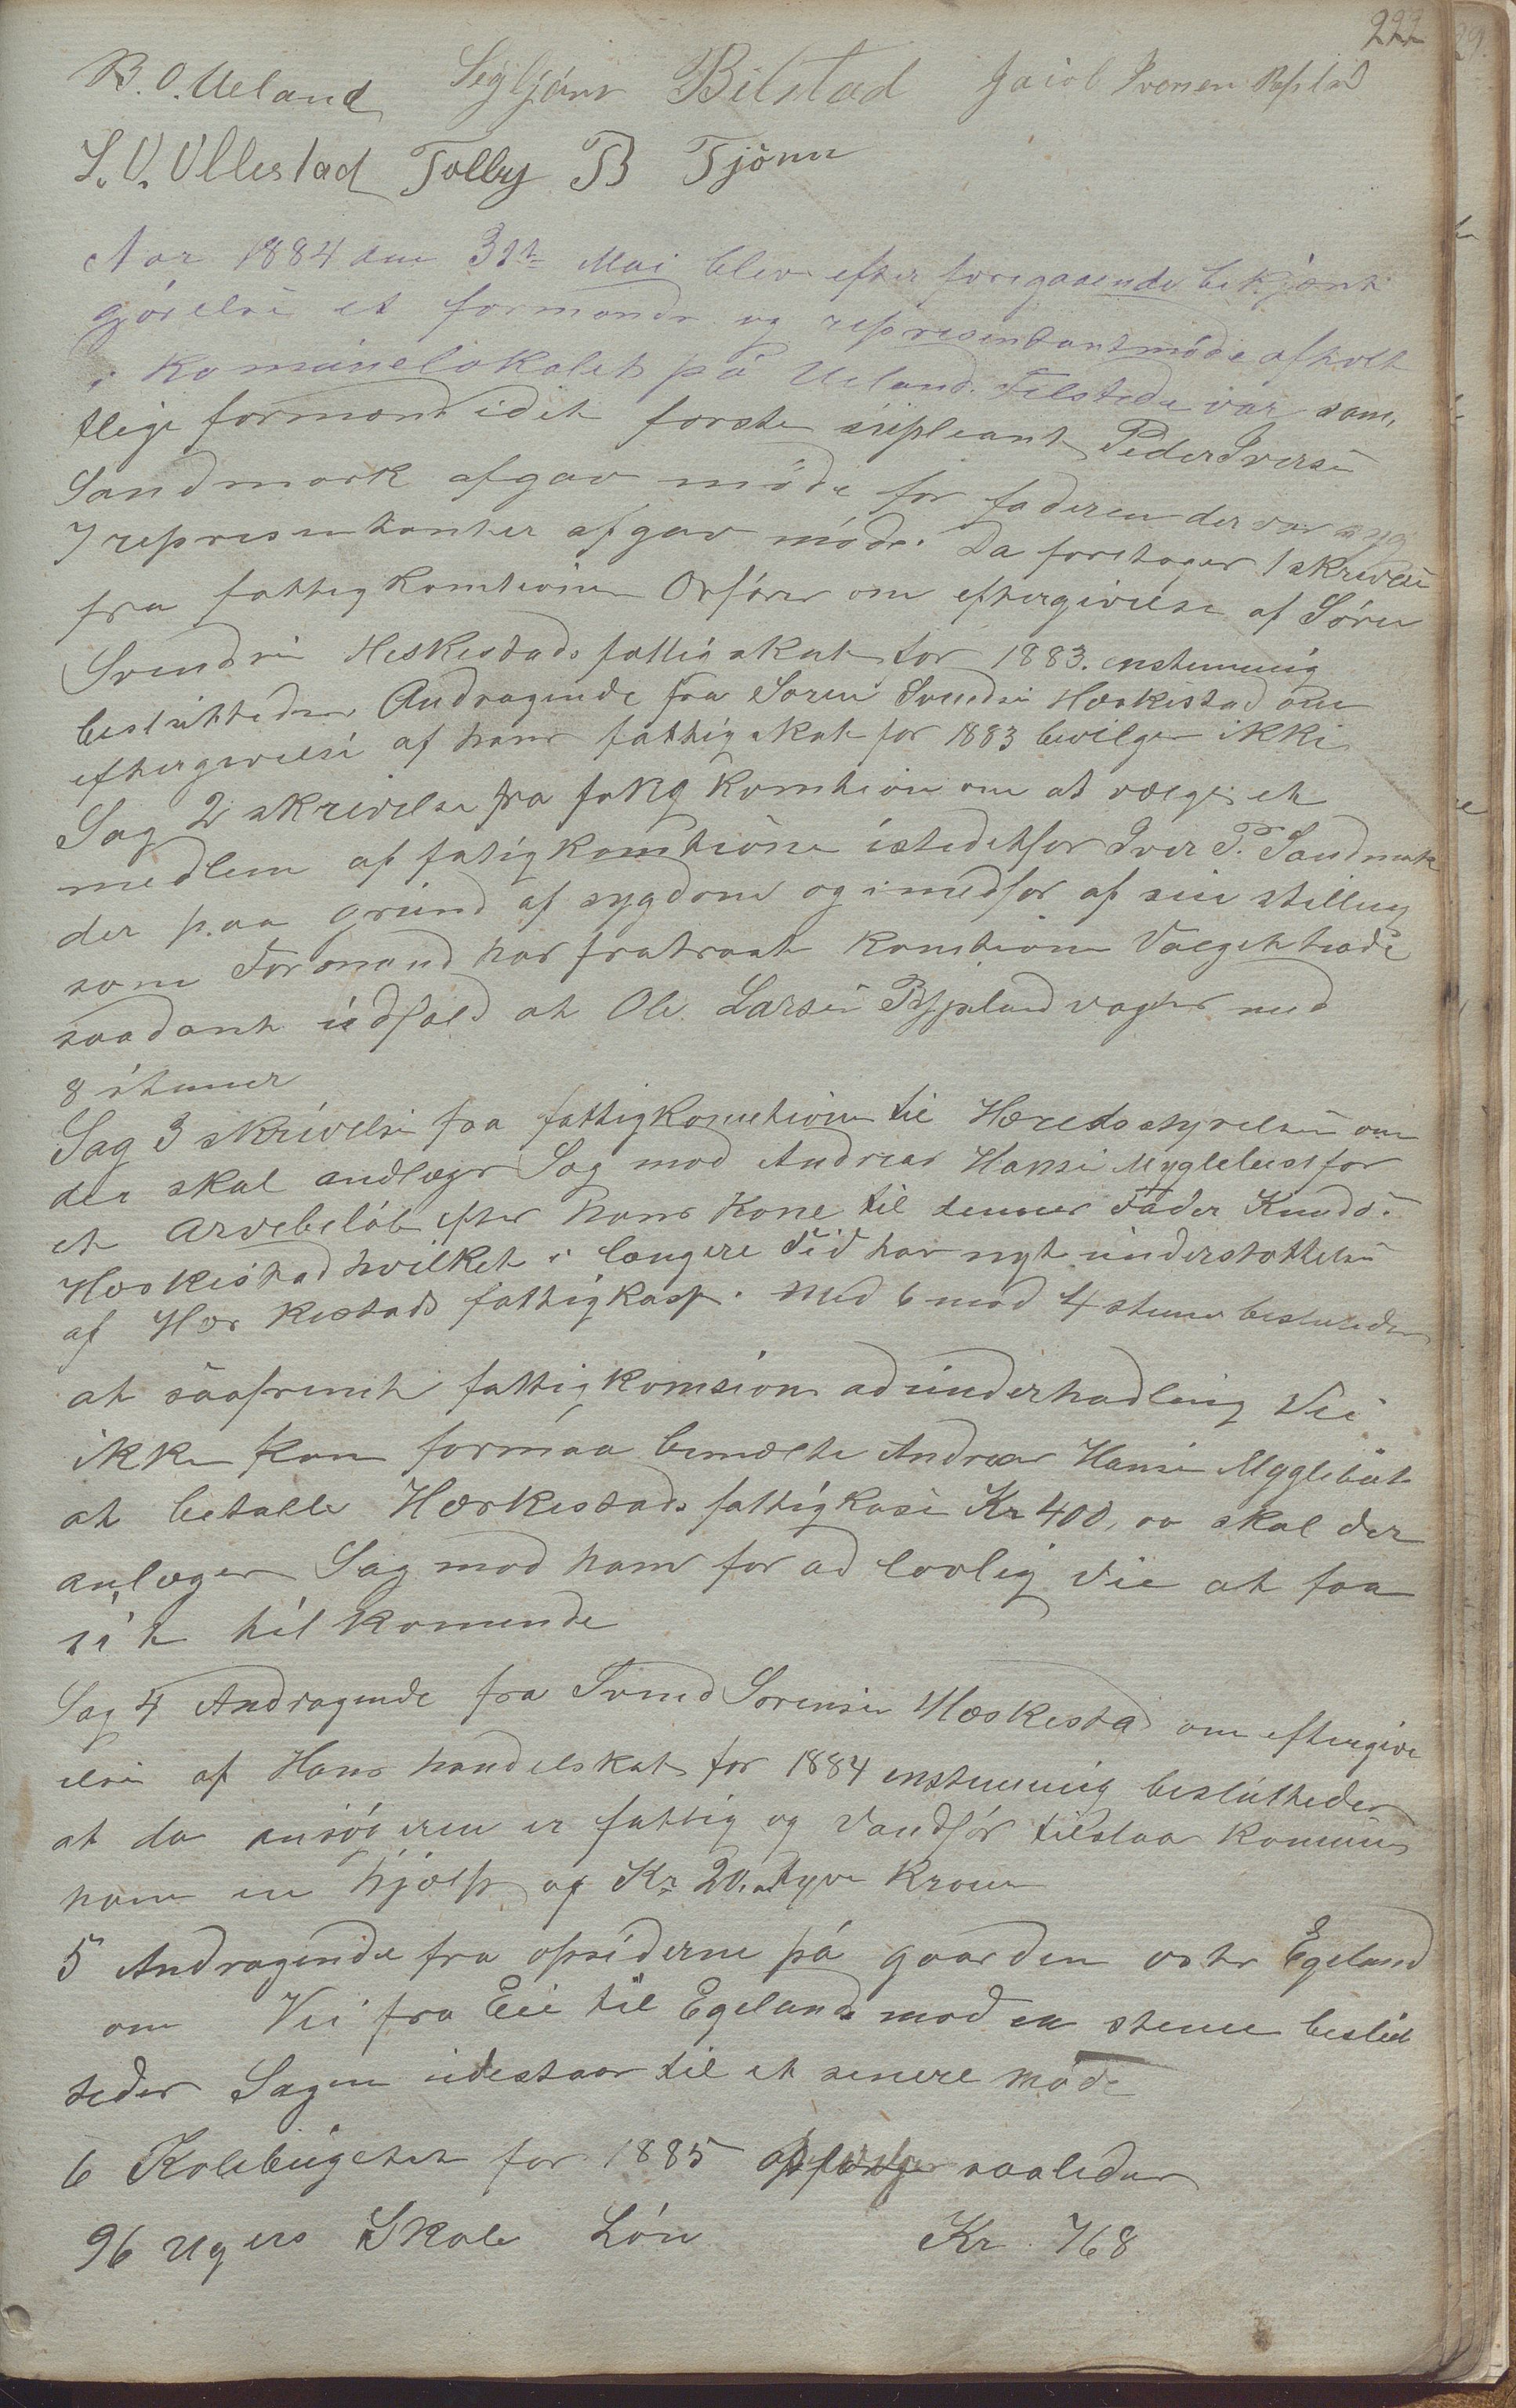 222
B. O. Ueland Sigbjørn Bilstad Jacob Iversen Repstad
S. O. Ullestad Tolley B Tjönn
Aar 1884 den 31te Mai blev efter foregaaende bekjent
gjörelse et formands og representantmöde afholt
i Komunelokalet på Ueland. Tilstede var sam,
tlige formænd idet forste supleant Peder Iversen
Sandmark afgav möde for faderen der var syg
7 representanter afgav möde. Da foretoges 1 skrivelse
fra fattigkomisions Orförer om eftergivelse af Sören
Svendsen Heskestads fattigskat for 1883. enstemmig
besluttedes Andragende fra Sören Svendsen Heskestad om
eftergivelse af hans fattigskat for 1883 bevilges ikke
Sag 2 skrivelse fra fattig komision om at vælge et
medlem af fatigkomisione istedetfor Iver P. Sandmark
der paa grund af sygdom og i medfor af sin stilling
som Formand har fratraat komisionen Valget havde
saadant udfald at Ole Larsen Bjuland valgtes med
8 stemer
Sag 3 skrivelse fra fattigkomisionen til Heredsstyrelsen om
der skal andlæges Sag mod Andreas Hansen Myglebust for
et arvebelöb efter hans Kone til dennes Fader Knud S.
Heskestad hvilket i længere Tid har nyt understøttelse
af Heskestads fattigkasse. med 6 mod 4 stemer besluttedes
at saafremt fattigkomsion ad underhadling Vei
ikke kan formaa bemælte Andreas Hansen Myglebust
at betale Heskestads fattigkase Kr 400, oo skal der
anlæges Sag mod ham for ad lovlig Vei at faa
sit tilkomende
Sag 4 Andragende fra Svend Sorensen Heskestad om eftergive
else af Hans handelskat for 1884 enstemmig besluttedes
at da ansögeren er fattig og Vandför tilstaar Komunen
ham en hjælp af Kr 20. tyve Kroner
5 Andragende fra opsiderne på gaarden vstr Egeland
om Vei fra Eie til Egeland. mod en steme beslut
tedes Sagen udestaar til et senere möde
6 Kolebugetet for 1885 saaledes
96 Ugers Skole Lön Kr. 768